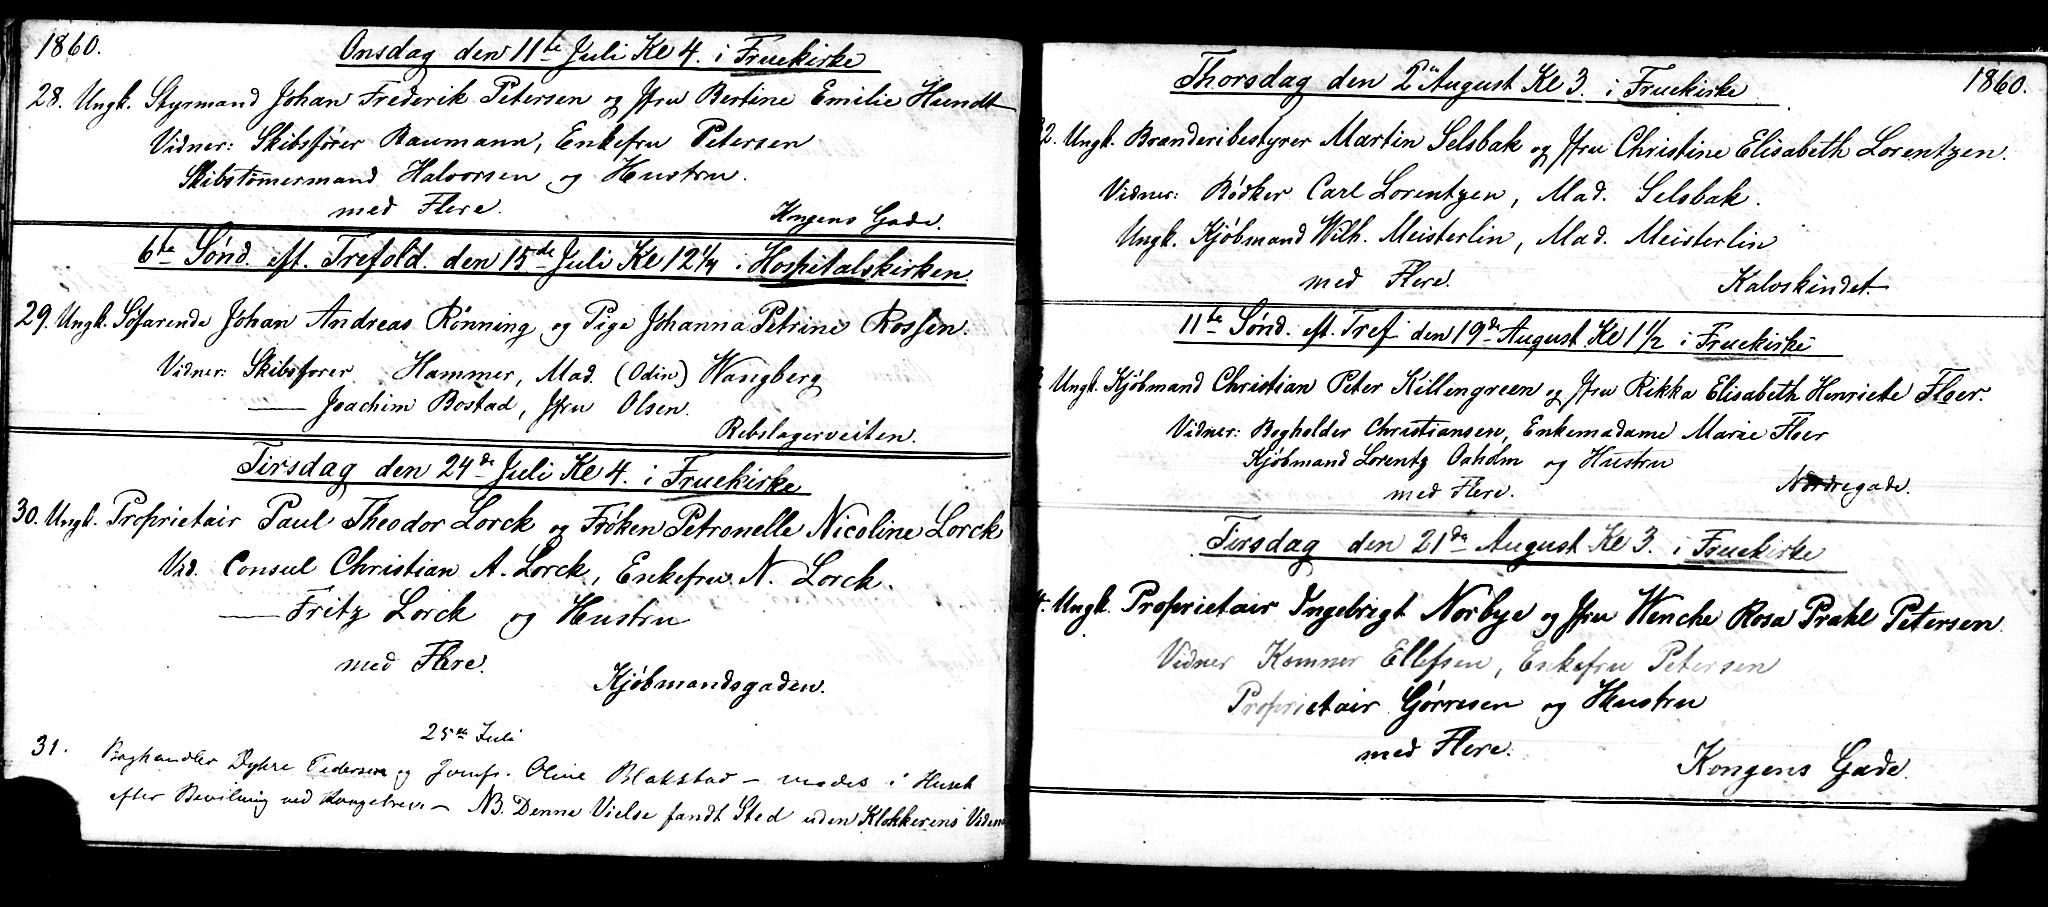 1860.
Onsdag den 11te Juli Kl 4. i Fruekirke
28. Ungk. Styrmand Johan Frederik Petersen og Jfru Bertine Emilie Hundt
Vidner: Skibsfører Baumann, Enkefru Petersen
Skibstømermand Halvorsen og Hustru.
med Flere.
Kngens Gade.
6te Sønd. eft. Trefold. den 15de Juli Kl 12 1/4 i Hospitalskirken.
29. Ungk. Søfarende Johan Andreas Rønning og Pige Johanna Petrine Rossen.
Vidner: Skibsfører Hammer, Mad. (Odin) Wangberg
—— Joachim Bostad, Jfru Olsen.
Rebslagerveiten.
Tirsdag den 24de Juli Kl 4. i Fruekirke
30. Ungk. Proprietair Paul Theodor Lorck og Frøken Petronelle Nicoline Lorck
Vid. Consul Christian A. Lorck, Enkefru N. Lorck.
—— Fritz Lorck og Hustru
med Flere.
Kjøbmandsgaden.
25de Juli
31. Boghandler Dyhre Pedersen og Jomfr. Oline Blakstad – viedes i Huset
efter Bevilning ved Kongebrev – NB. Denne Vielse fandt Sted uden Klokkerens Viden
Thorsdag den 2den August Kl 3. i Fruekirke
1860.
2. Ungk. Branderibestyrer Martin Selsbak og Jfru Christine Elisabeth Lorentzen.
Vidner: Bødker Carl Lorentzen, Mad. Selsbak.
Ungk. Kjøbmand Wilh. Meisterlin, Mad. Meisterlin
med Flere.
Kalvskindet.
11te Sønd. eft. Tref. den 19de August Kl 1 1/2 i Fruekirke
Ungk. Kjøbmand Christian Peter Killengreen og Jfru Rikka Elisabeth Henriette Floer.
Vidner: Bogholder Christiansen, Enkemadame Marie Floer
Kjøbmand Lorentz Oxholm og Hustru
med Flere.
Nordregade.
Tirsdag den 21de August Kl 3. i Fruekirke
4. Ungk. Proprietair Ingebrigt Norbye og Jfru Wenche Rosa Prahl Petersen.
Vidner Kemner Ellefsen, Enkefru Petersen
Proprietair Gørresen og Hustru
med Flere.
Kongens Gade.